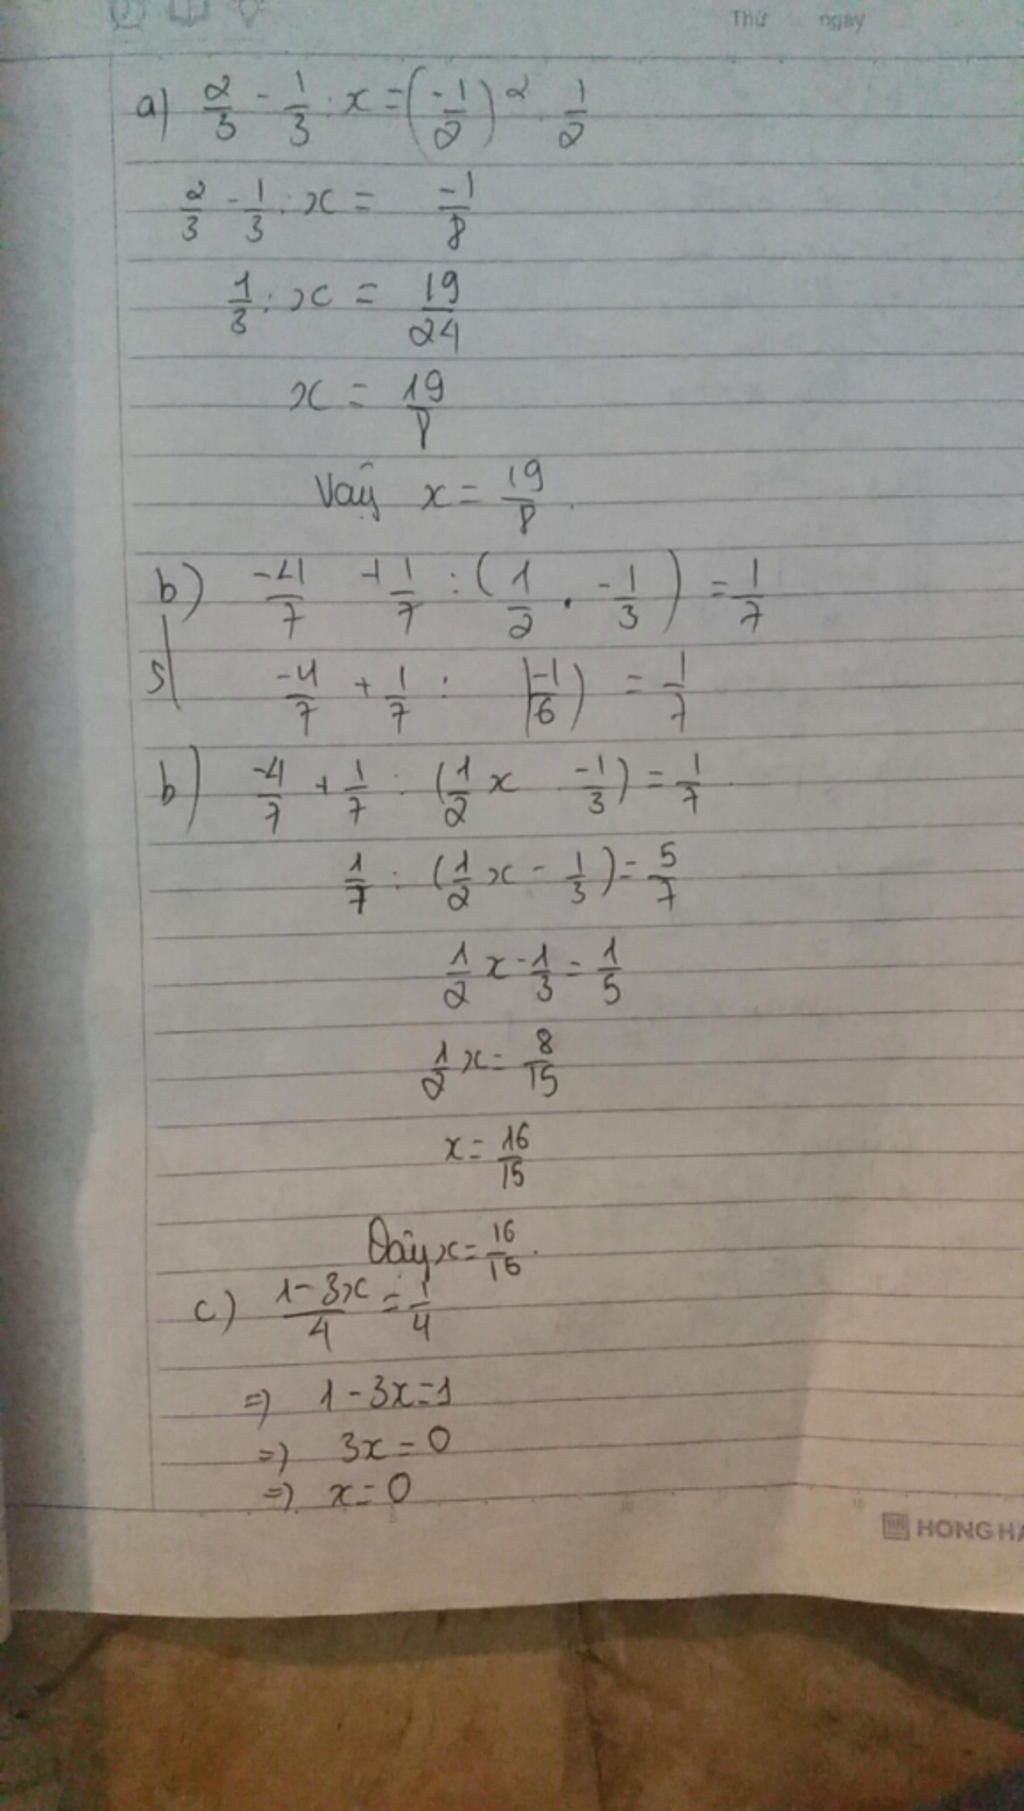 Thứ ngày
a) 2/3 - 1/3 . x = (-1/2)^2 . 1/2
2/3 - 1/3 . x = -1/8
1/3 : x = 19/24
x = 19/8
Vậy x = 19/8.
b) -4/7 + 1/7 : (1/2 . -1/3) = 1/7
-4/7 + 1/7 : (-1/6) = 1/7
b) -4/7 + 1/7 : (1/2 x -1/3) = 1/7
1/7 : (1/2 x - 1/3) = 5/7
1/2 x - 1/3 = 1/5
1/2 x = 8/15
x = 16/15
Vậy x = 16/15.
c) 1-3x/4 = 1/4
=> 1 - 3x = 1
=> 3x = 0
=> x = 0
HONG HA